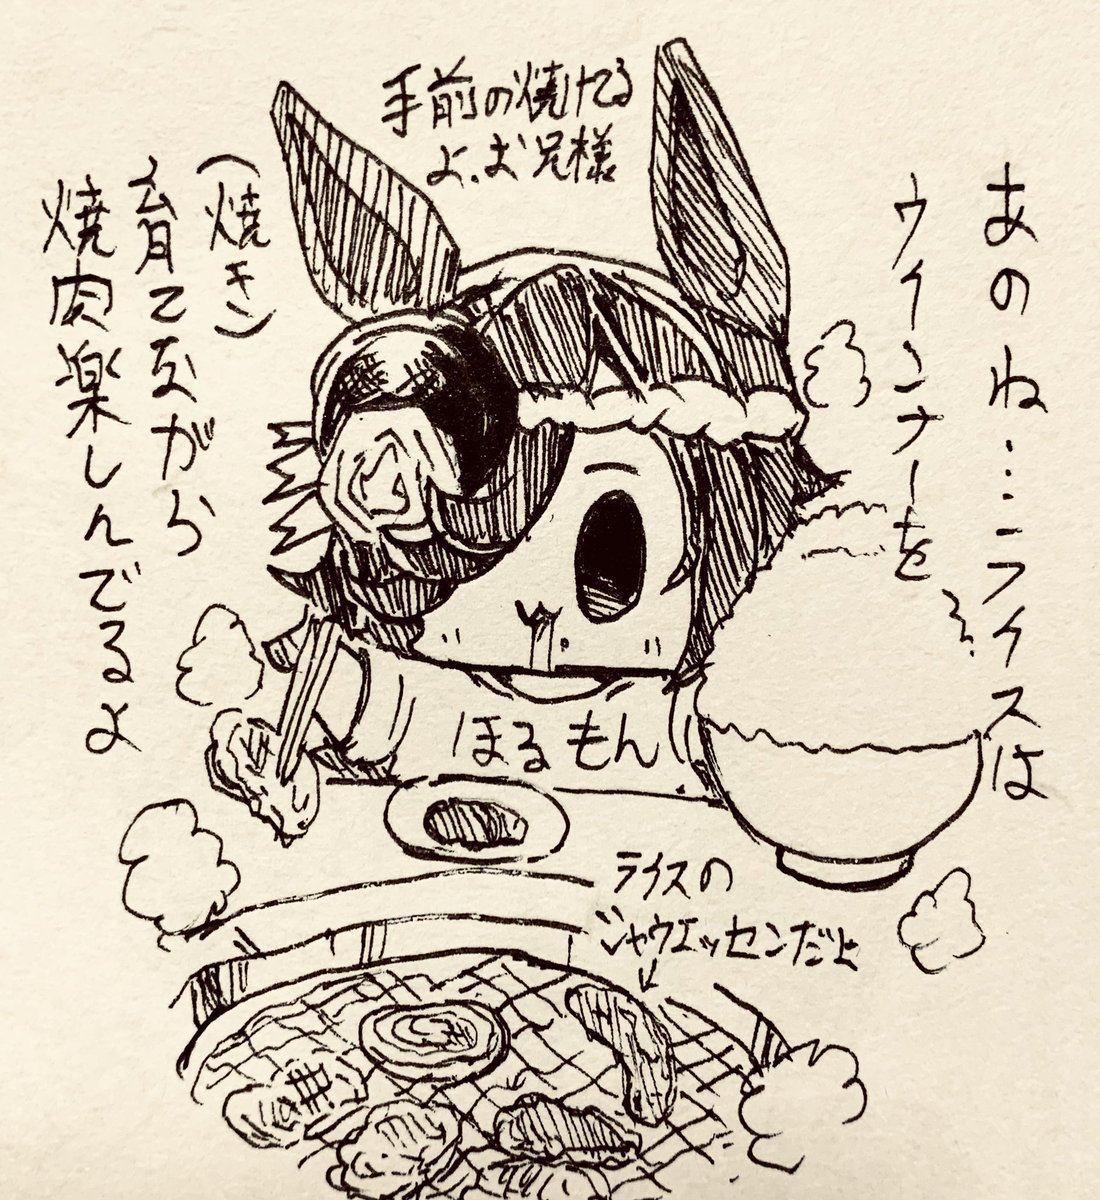 あのね…ライスは
ウインナーを
(焼き)
育てながら
焼肉楽しんでるよ
手前の焼けてる
よ、お兄様
ほるもん
ライスの
シャウエッセンだよ